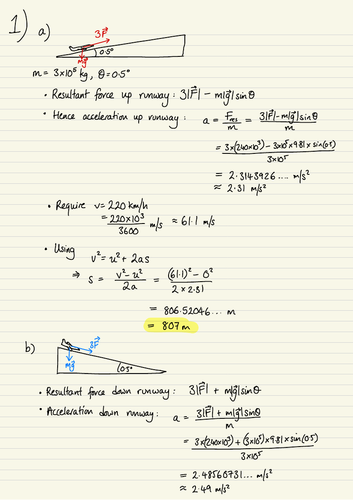 1) a)
3|F⃗|
0.5°
m|g⃗|
m = 3×10⁵ kg, θ = 0.5°
• Resultant force up runway: 3|F⃗| − m|g⃗|sinθ
• Hence acceleration up runway: a = Fres/m = (3|F⃗| − m|g⃗|sinθ)/m
= (3×(240×10³) − 3×10⁵×9.81×sin(0.5))/(3×10⁵)
= 2.3143926.... m/s²
≈ 2.31 m/s²
• Require v = 220 km/h
= (220×10³)/3600 m/s ≈ 61.1 m/s
• Using
v² = u² + 2as
⇒ s = (v² − u²)/2a = ((61.1)² − 0²)/(2 × 2.31)
= 806.52046... m
= 807 m
b)
3F⃗
m|g⃗|
0.5°
• Resultant force down runway: 3|F⃗| + m|g⃗|sinθ
• Acceleration down runway: a = (3|F⃗| + m|g⃗|sinθ)/m
= (3×(240×10³) + (3×10⁵)×9.81×sin(0.5))/(3×10⁵)
= 2.48560731... m/s²
≈ 2.49 m/s²